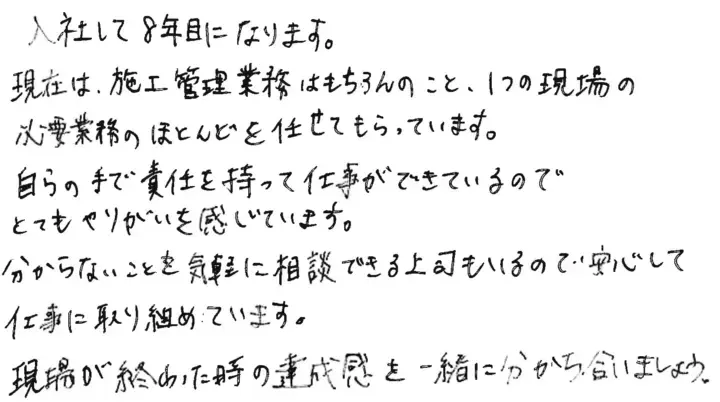 入社して8年目になります。
現在は、施工管理業務はもちろんのこと、1つの現場の
必要業務のほとんどを任せてもらっています。
自らの手で責任を持って仕事ができているので
とてもやりがいを感じています。
分からないことを気軽に相談できる上司もいるので安心して
仕事に取り組めています。
現場が終わった時の達成感を一緒に分かち合いましょう。